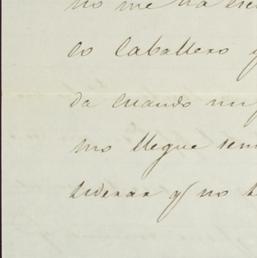 no me ha
do Caballero
da cuando mi
mo llegue
siderar q no